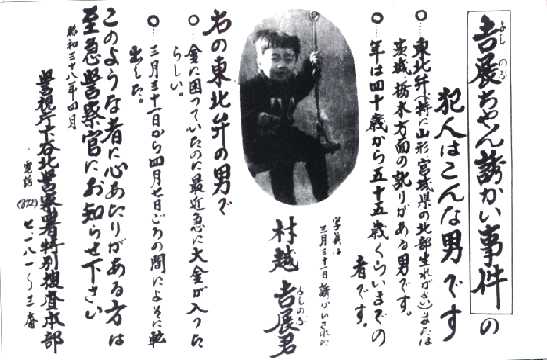 吉展ちゃん誘かい事件の
よし のぶ
犯人はこんな男です
○…東北弁(特に山形、宮城県の北部生れがき)または
茨城、栃木方面の訛りがある男です。
○…年は四十歳から五十五歳くらいまでの
者です。
写真は
三月三十一日
村越 吉展君
よしのぶ
右の東北弁の男で
○…金に困っていたのに最近急に大金が入った
らしい。
○…三月三十一日から四月七日ごろの間によそに転
出した。
このような者に心あたりがある方は
至急警察官にお知らせ下さい
昭和三十八年四月
警視庁下谷北警察署特別捜査本部
電話(872)七一八一〜三番